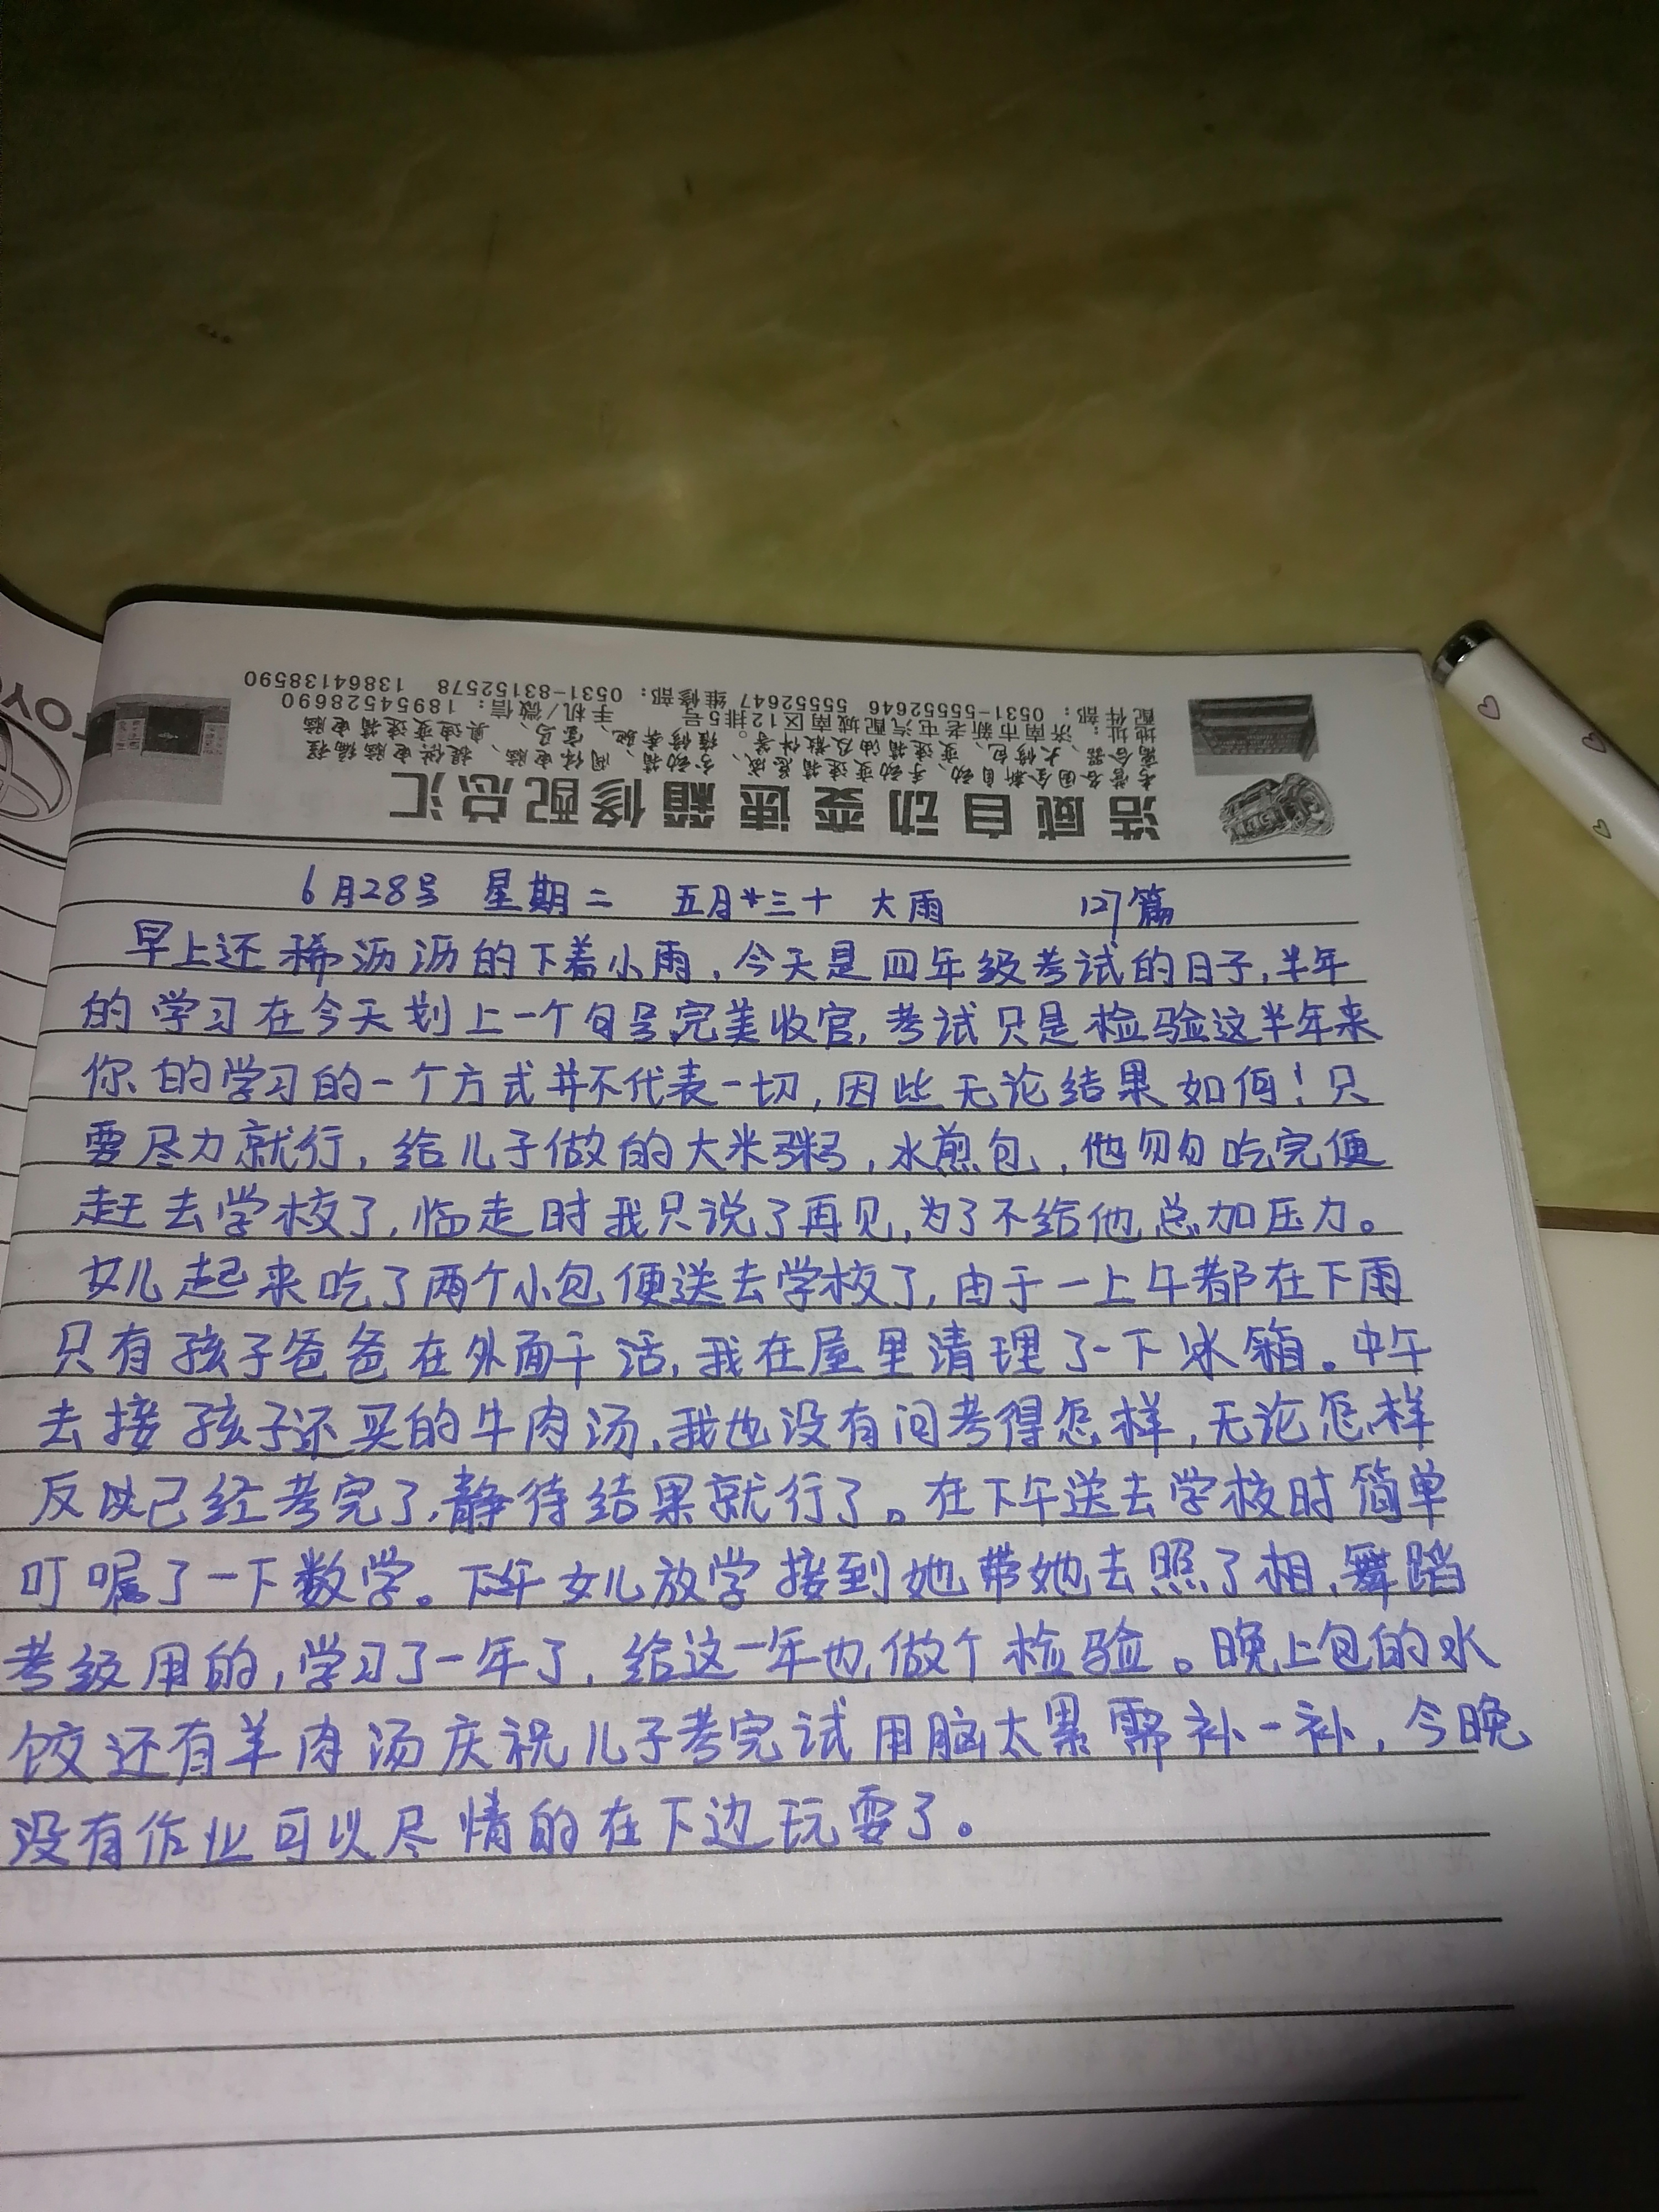 浩威自动变速箱修配总汇
地址：济南市新老屯汽配城南区12排5号 手机/微信：18954528690
配件部：0531-55552646 55552647 维修部：0531-83152578 13864138590
6月28号 星期二 五月三十 大雨 127篇
早上还稀沥沥的下着小雨，今天是四年级考试的日子，半年
的学习在今天划上一个句号完美收官，考试只是检验这半年来
你的学习的一个方式并不代表一切，因此无论结果如何！只
要尽力就行，给儿子做的大米粥，水煎包，他匆匆吃完便
赶去学校了，临走时我只说了再见，为了不给他总加压力。
女儿起来吃了两个小包便送去学校了，由于一上午都在下雨
只有孩子爸爸在外面干活，我在屋里清理了一下冰箱。中午
去接孩子还买的牛肉汤，我也没有问考得怎样，无论怎样
反以已经考完了，静待结果就行了。在下午送去学校时简单
叮嘱了一下数学。下午女儿放学接到她带她去照了相，舞蹈
考级用的，学习了一年了，给这一年也做个检验。晚上包的水
饺还有羊肉汤庆祝儿子考完试用脑太累需补一补，今晚
没有作业可以尽情的在下边玩耍了。